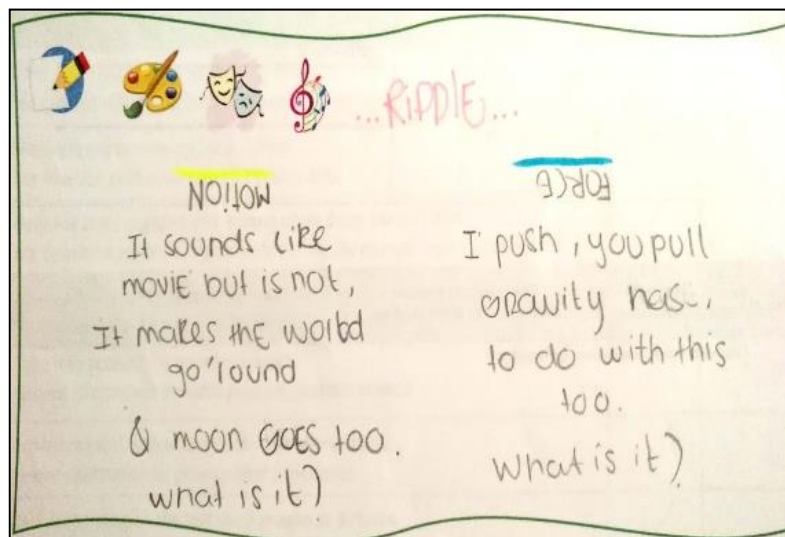 ...RiDDlE...
MOTiON
It sounds like
movie but is not,
It makes the worlbd
go'round
& moon GOES too.
what is it?
FORCE
I push, you pull
GRavity has
to do with this
too.
what is it?